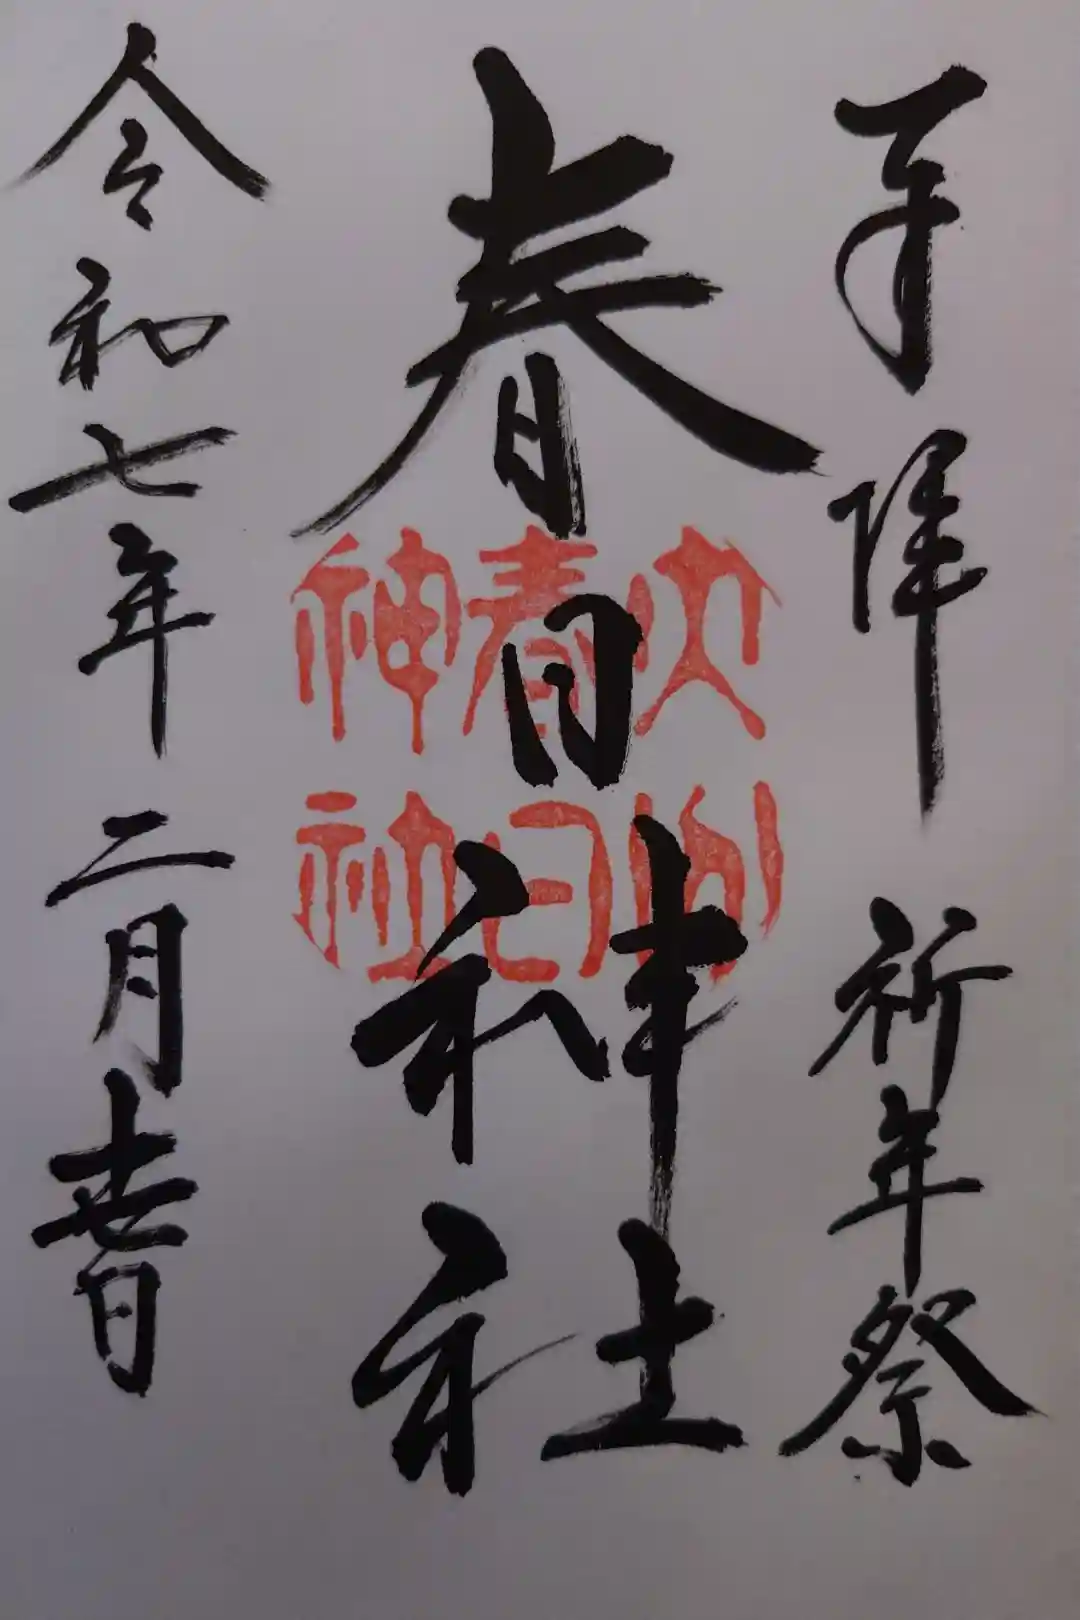 奉拝 祈年祭
春日神社
春日
神社
令和七年二月日